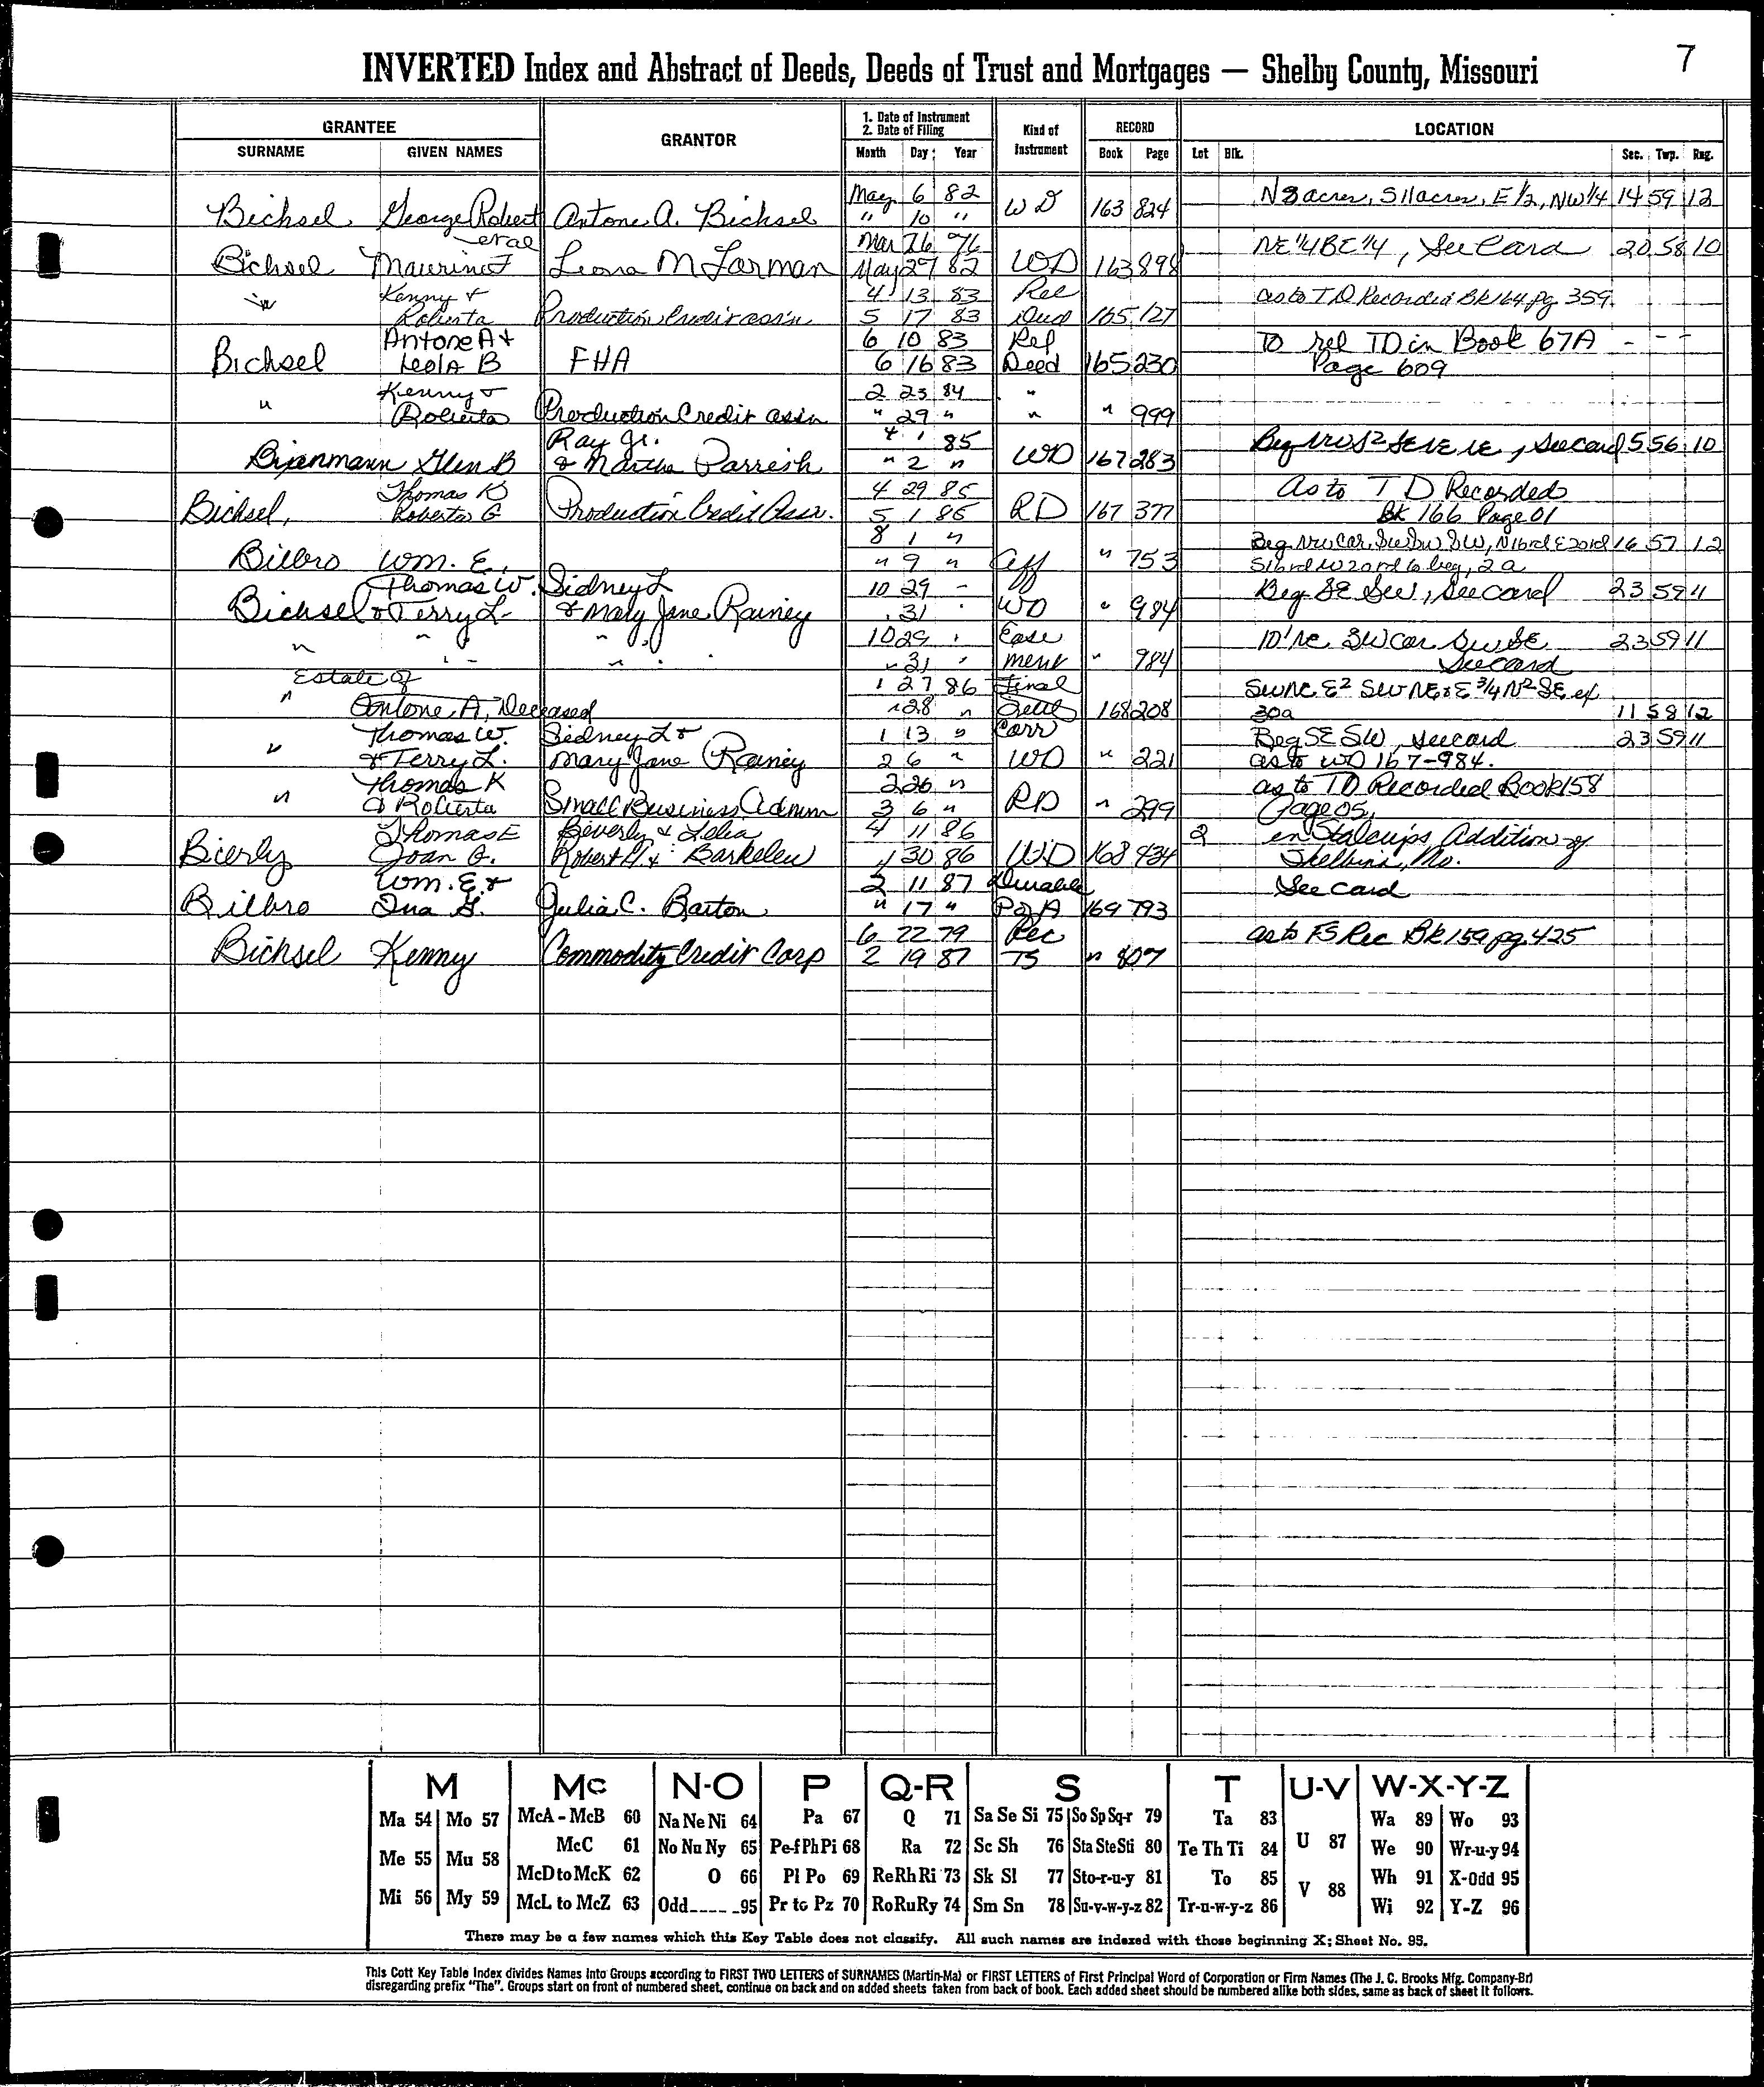 7
INVERTED Index and Abstract of Deeds, Deeds of Trust and Mortgages — Shelby County, Missouri
GRANTEE GRANTOR 1. Date of Instrument 2. Date of Filing Kind of Instrument RECORD LOCATION
SURNAME GIVEN NAMES Month Day Year Book Page Lot Blk. Sec. Twp. Rng.
May 6 82 N 8 acres, S 11 acres, E 1/2, NW 1/4 14 59 12
Bichsel George Robert Antone A. Bichsel " 10 " WD 163 824
et al Mar 26 76 NE 1/4 BE 1/4, See Card 20 58 10
Bichsel Maurine F Leona M Forman May 27 82 WD 163 898
" Kenny & 4 13 83 Rel as to TD Recorded Bk 164 pg 359
Roberta Production Credit assn 5 17 83 Deed 165 127
Antone A & 6 10 83 Rel To rel TD in Book 67A - - -
Bichsel Leola B FHA 6 16 83 Deed 165 230 Page 609
Kenny & 2 23 84 "
" Roberta Production Credit assn " 29 " " " 999
Ray Jr. 4 1 85 Beg NW S2 SE NE NE, See card 5 56 10
Bienmann Glen B & Martha Parrish " 2 " WD 167 283
Thomas K 4 29 85 As to T D Recorded
Bichsel, Roberta G Production Credit Assn. 5 1 85 RD 167 377 Bk 166 Page 01
8 1 " Beg NW Cor, SW SW SW, N 16 rd E 20 rd 16 57 12
Bilbro Wm. E. " 9 " Aff " 753 S 16 rd W 20 rd to beg, 2 a
Thomas W. Sidney L 10 29 - Beg SE SW, See card 23 59 11
Bichsel & Terry L. & Mary Jane Rainey 31 " WD " 984
" " " 10 29 " Ease 10' NE SW cor SW SE 23 59 11
" 31 " ment " 984 See card
Estate of 1 27 86 Final SW NE E2 SW NE & E 3/4 N2 SE ex
" Antone A, Deceased " 28 " Settl 168 208 30a 11 58 12
Thomas W. Sidney L & 1 13 " Corr Beg SE SW, see card 23 59 11
" & Terry L. Mary Jane Rainey 2 6 " WD " 221 as to WD 167-984.
Thomas K 2 26 " as to TD Recorded Book 158
" & Roberta Small Business Admin 3 6 " RD " 299 Page 05,
Thomas E Beverly & Lelia 4 11 86 2 in Stalcups Addition of
Bierly Joan G. Robert H. & Barkelew 4 30 86 WD 168 434 Shelbina, Mo.
Wm. E. & 2 11 87 Durable See card
Bilbro Ina G. Julia C. Barton " 17 " P of A 169 793
6 22 79 Rec as to FS Rec Bk 159 pg 425
Bichsel Kenny Commodity Credit Corp 2 19 87 TS " 807
M Mc N-O P Q-R S T U-V W-X-Y-Z
Ma 54 Mo 57 McA - McB 60 Na Ne Ni 64 Pa 67 Q 71 Sa Se Si 75 So Sp Sq-r 79 Ta 83 Wa 89 Wo 93
Me 55 Mu 58 McC 61 No Nu Ny 65 Pe-f Ph Pi 68 Ra 72 Sc Sh 76 Sta Ste Sti 80 Te Th Ti 84 U 87 We 90 Wr-u-y 94
McD to McK 62 O 66 Pl Po 69 Re Rh Ri 73 Sk Sl 77 Sto-r-u-y 81 To 85 Wh 91 X-Odd 95
Mi 56 My 59 McL to McZ 63 Odd 95 Pr to Pz 70 Ro Ru Ry 74 Sm Sn 78 Su-v-w-y-z 82 Tr-u-w-y-z 86 V 88 Wi 92 Y-Z 96
There may be a few names which this Key Table does not classify. All such names are indexed with those beginning X; Sheet No. 95.
This Cott Key Table Index divides Names into Groups according to FIRST TWO LETTERS of SURNAMES (Martin-Ma) or FIRST LETTERS of First Principal Word of Corporation or Firm Names (The J. C. Brooks Mfg. Company-Br)
disregarding prefix "The". Groups start on front of numbered sheet, continue on back and on added sheets taken from back of book. Each added sheet should be numbered alike both sides, same as back of sheet it follows.